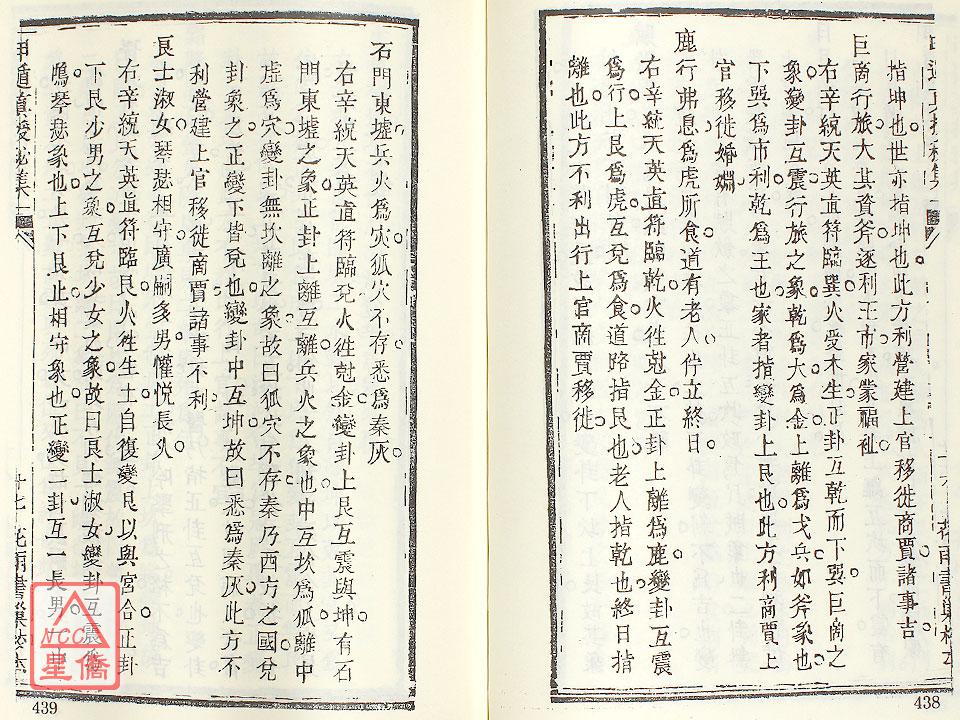 指坤也世亦指坤也此方利營建上官移徙商賈諸事吉
巨商行旅大其資斧逐利王市家蒙福祉
右辛統天英直符臨巽火受木生正卦互乾而下巽巨商之
象變卦互震行旅之象乾爲大爲金上離爲戈兵如斧象也
下巽爲市利乾爲王也家者指變卦上艮也此方利商賈上
官移徙婚姻
鹿行弗息爲虎所食道有老人佇立終日
右辛統天英直符臨乾火徃尅金正卦上離爲鹿變卦互震
爲行上艮爲虎互兌爲食道路指艮也老人指乾也終日指
離也此方不利出行上官商賈移徙
438
石門東墟兵火爲災狐穴不存悉爲秦灰
右辛統天英直符臨兌火徃尅金變卦上艮互震與坤有石
門東墟之象正卦上離互離兵火之象也中互坎爲狐離中
虛爲穴變卦無坎離之象故曰狐穴不存秦乃西方之國兌
卦象之正變下皆兌也變卦中互坤故曰悉爲秦灰此方不
利營建上官移徙商賈諸事不利
艮士淑女琴瑟相守廣嗣多男懽悅長久
右辛統天英直符臨艮火徃生土自復變艮以與宮合正卦
下艮少男之象互兌少女之象故曰艮士淑女變卦互震爲
鳴琴瑟象也上下艮止相守象也正變二卦互一長男一中
十七
439
NCC
星僑